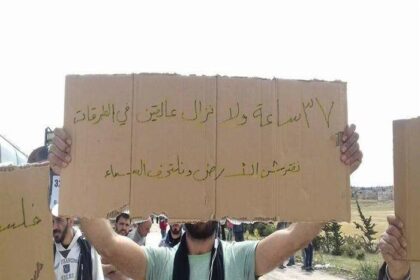 ٣٧ ساعة ولا نزال عالقين في الطرقات
نفترش الأرض ونلتحف السماء